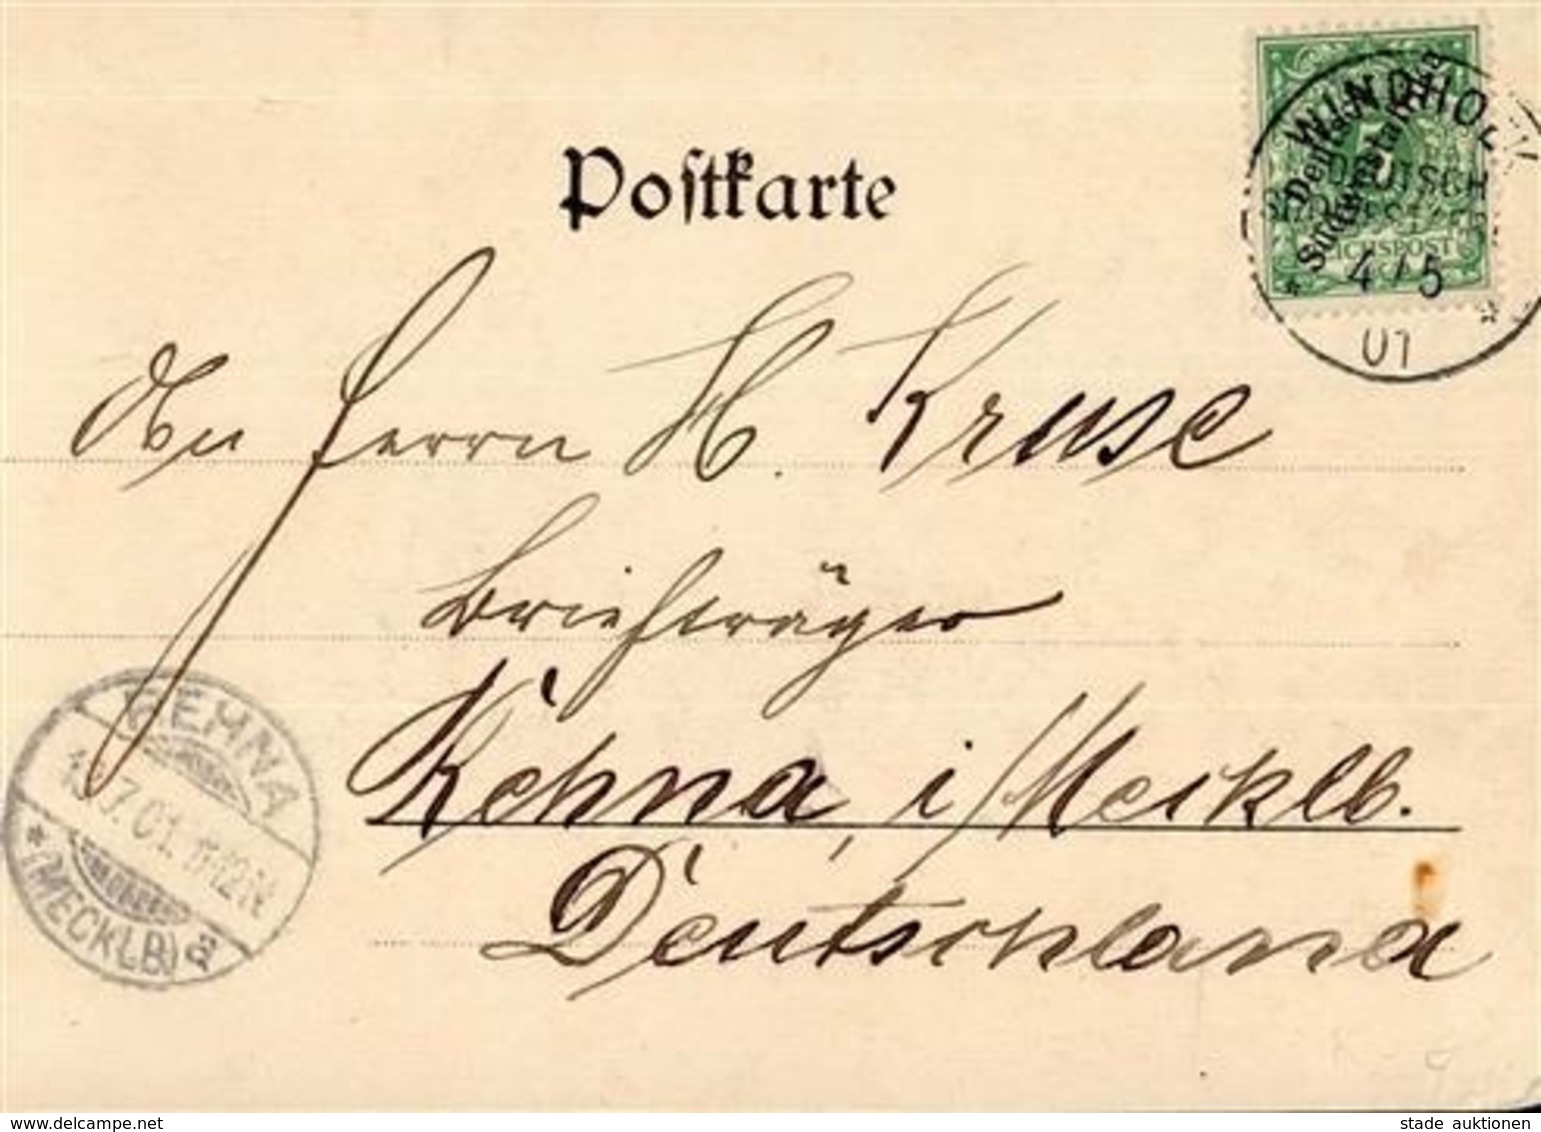 Postkarte
WINDHOEK
DEUTSCH
SÜDWESTAFR.
Deutsch-
Südwest-Afrika
5
REICHSPOST
4/5
01
An Herrn H. Kruse
Briefträger
Rehna, i/Mecklb.
Deutschland
REHNA
7.01. 11-12N
* (MECKLB)
delcampe.net
stade auktionen